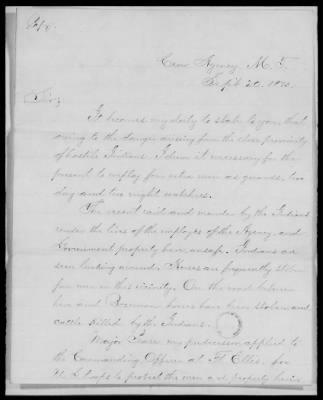 Crow Agency, M. T.
Sept. 20, 1870.
Sir,
It becomes my duty to state to you that
owing to the danger arising from the close proximity
of hostile Indians I deem it necessary for the
present to employ four extra men as guards, two
day and two night watches.
The recent raid and murder by the Indians
render the lives of the employes of the Agency, and
Government property here unsafe. Indians are
seen lurking around. Horses are frequently stolen
from men in this vicinity. On the road between
here and Bozeman horses have been stolen and
cattle killed by the Indians.
Major my predecessor applied to
the Commanding Officer at Ft. Ellis, for
U. S. troops to protect the men and property here